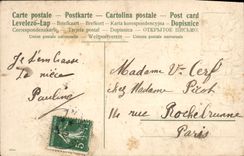 Carte postale - Postkarte - Cartolina postale - Post card
Levelező-Lap - Briefkaart - Brefkort - Karta korespondencyjna - Dopisnice
Correspondenzkarte - Tarjeta postal - Dopisnica - ОТКРЫТОЕ ПИСЬМО
Union postale universelle - Weltpostverein - Unione postale universale
Je t'embrasse
Ta nièce
Pauline
Madame Vve Cerf
chez Madame Picot
14 rue Rochebrunne
Paris
5